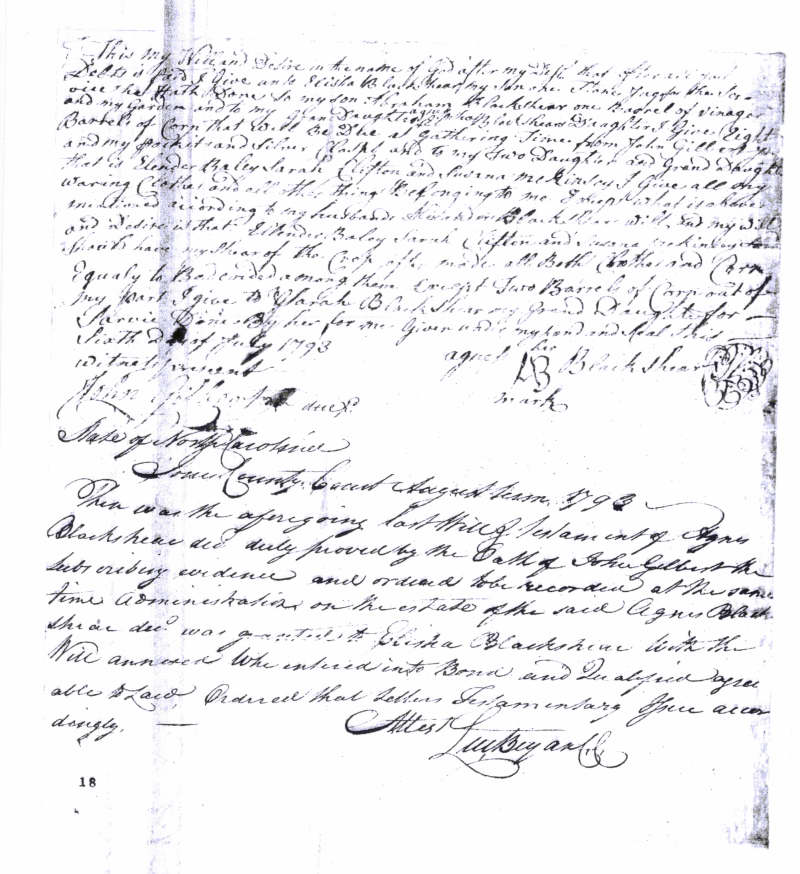 This my Will and Desire in the name of God after my Deth that after all just
Debts is paid I Give unto Elisha Black Shear my son one
vice he Hath Done to my son Abraham Blackshear one Barrel of vinager
and my Garden and to my Gran Daughter Blackshear Daughter I Give Eight
Barrels of Corn that Will Be Due at Gathering Time from John Gilbert
and my Pockets and Silver and to my Two Daughters and Grand Daughter
that is Elender Baley Sarah Clifton and Susana McKinsey I Give all my
waring Clothes and all other thing Belonging to me Except what is above
mentioned according to my husbands Blackshear will and my will
and Desire is that Ellender Baley Sarah Clifton and Susana
Should have my Shear of the Crop after made all Both and Corn
Equaly to Be devided among them Except Two Barrels of Corn out of
my part I give to Sarah Black Shear my Grand Daughter for
Sarvis Done By her for me Given under my hand and Seal this
Sixth Day of July 1793
witness present
agnes her AB mark Black Shear
John Gilbert
State of North Carolina
Jones County Court August term 1793
Then was the aforegoing last Will & Testament of Agnes
Blackshear decd duly proved by the Oath of John Gilbert the
subscribing evidence and ordered to be recorded at the same
time Administration on the estate of the said Agnes Black
shear decd was granted to Elisha Blackshear with the
Will annexed Who entered into Bond and Qualified agree
able to Law, Ordered that Letters Testamentary Issue accor
dingly.
Attest
Lew. Bryan CC
18